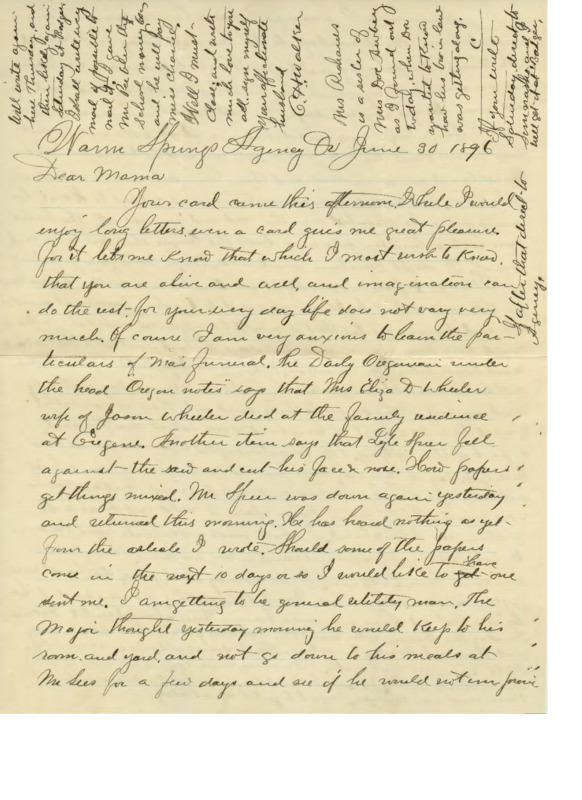 Warm Springs Agency Or June 30 1896
Dear Mama
Your card came this afternoon. While I would
enjoy long letters even a card gives me great pleasure
for it lets me know that which I most wish to know.
that you are alive and well, and imagination can
do the rest for your every day life does not vary very
much. Of course I am very anxious to learn the par-
ticulars of Ma's funeral. The Daily Oregonian under
the head Oregon notes" says that Mrs Eliza D Wheeler
wife of Jason Wheeler died at the family residence
at Eugene. Another item says that Lyle Speer fell
against the saw and cut his face & nose. How papers
get things mixed. Mr Speer was down again yesterday
and returned this morning. He has heard nothing as yet
from the article I wrote. Should some of the papers
come in the next 10 days or so I would like to get have one
sent me. I am getting to be general utility man. The
Major thought yesterday morning he would keep to his
room and yard, and not go down to his meals at
Mr Lees for a few days and see if he would not improve
Will write again
Thursday and
then
Saturday
I shall
mail if possible to
mail
Mr
school money
and he will pay
Miss
Well I must
close, and with
much love to you
all sign myself
Your affectionate
husband
C H Walker
Mrs
is a sister of
Mrs Doc
as I found out
today, when Doc
wanted to know
how his bro in law
was getting along.
C
If you write
Saturday direct to
Simnasho and I
will get it at
If after that direct to
Agency.